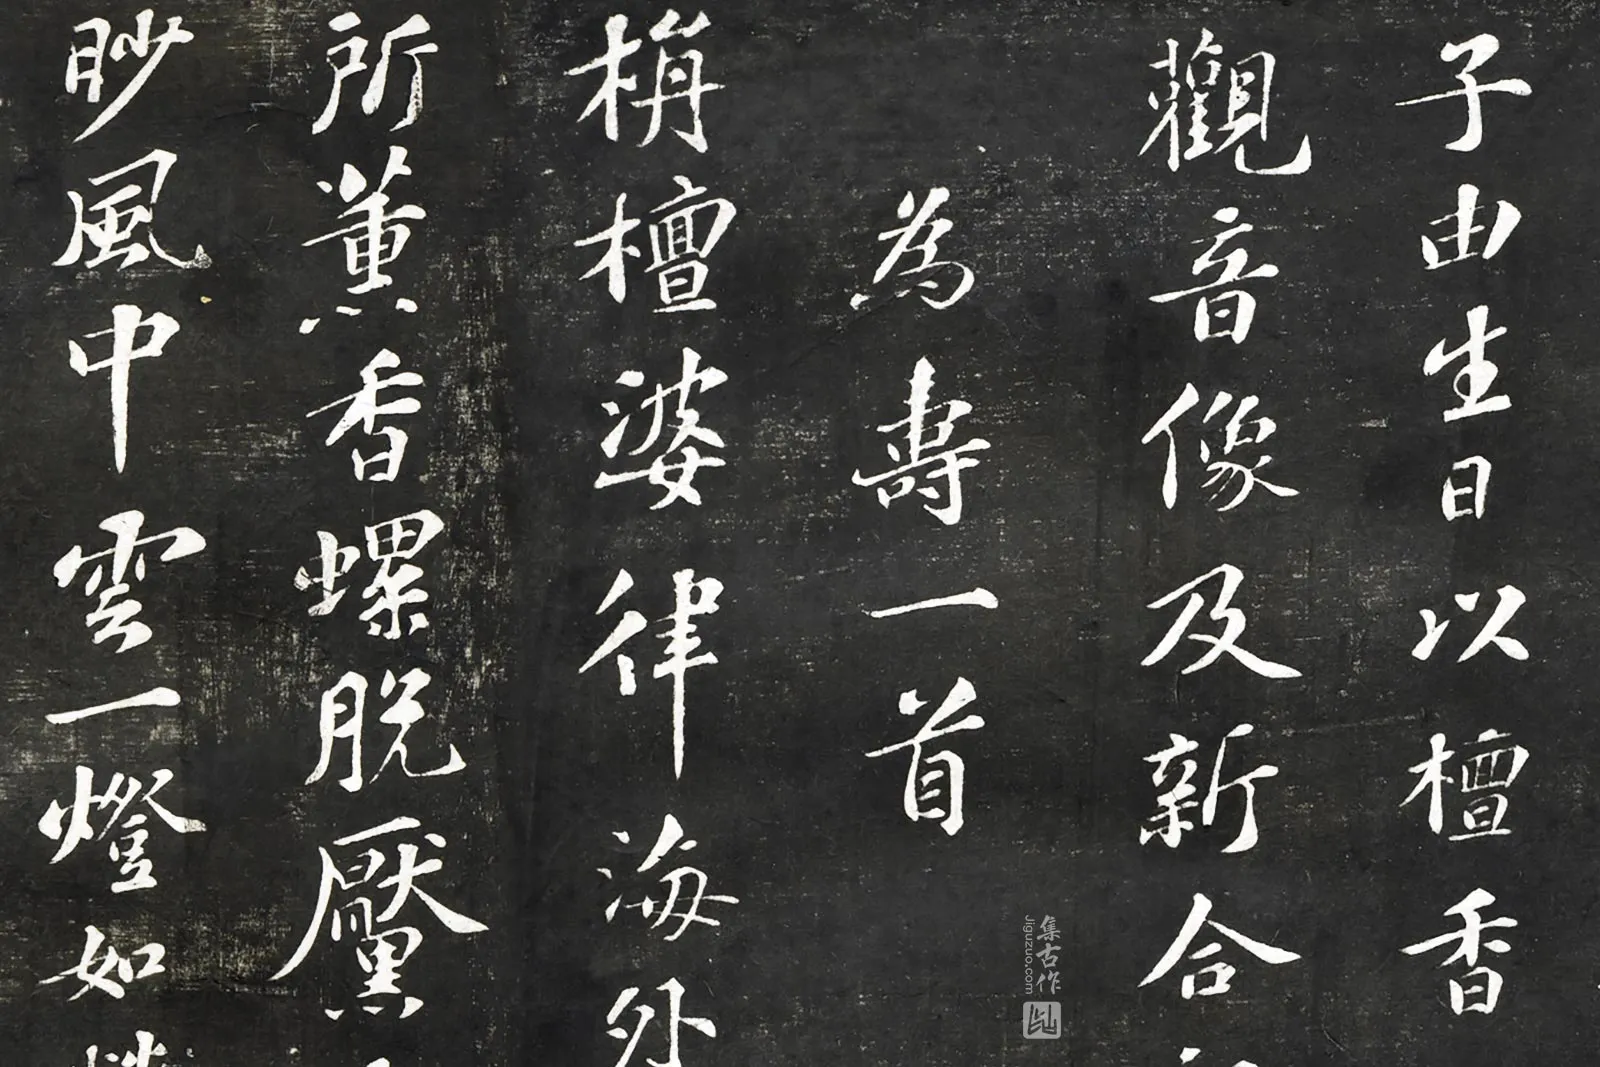 子由生日以檀香
觀音像及新合
為壽一首
栴檀婆律海外
所薰香螺脱黶
眇風中雲一燈如
集古作
jiguzuo.com